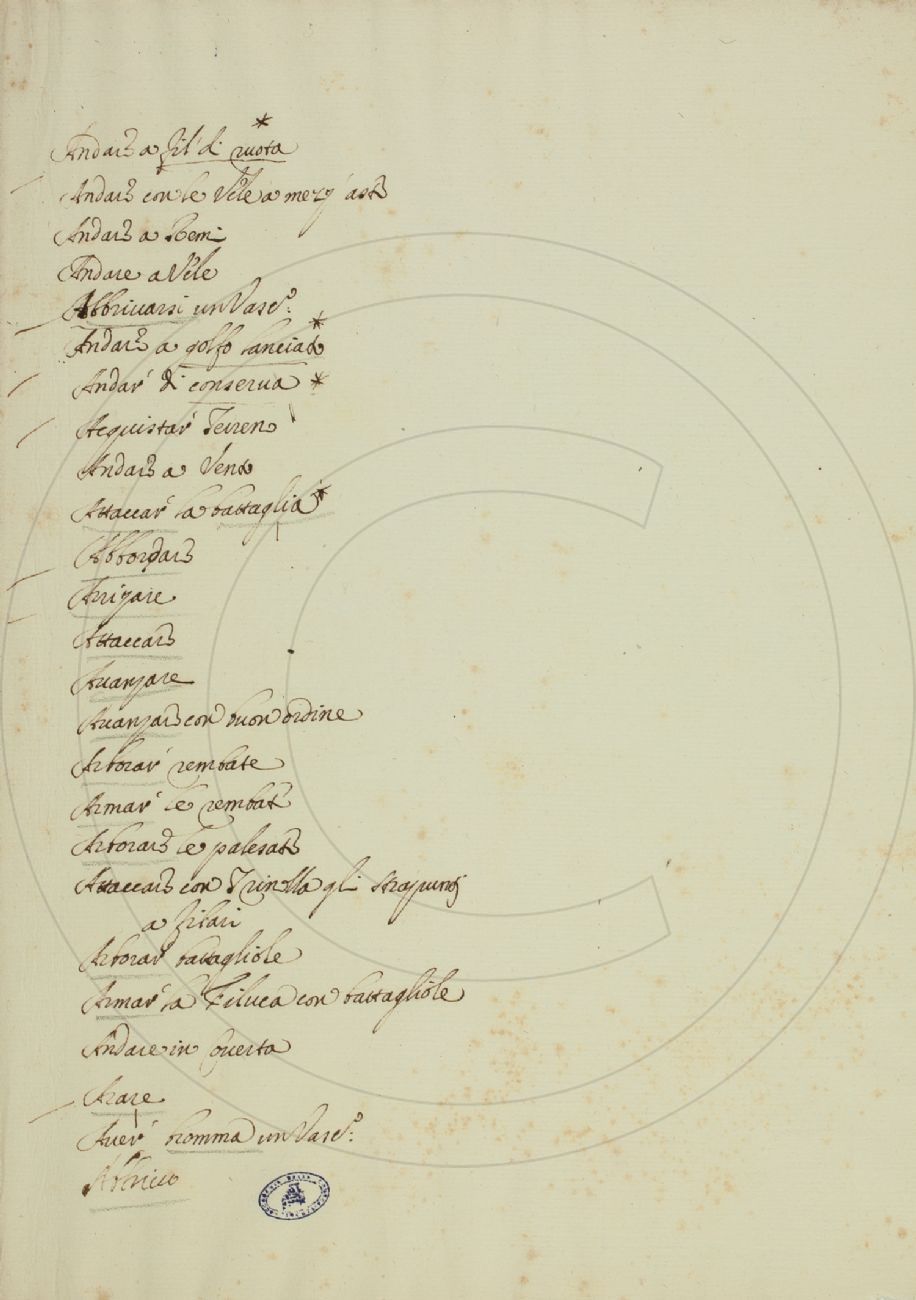 Andare a fil di ruota *
Andare con le Vele a mezz' aste
Andare a Remi
Andare a Vele
Abbrivarsi un Vasc.º:
Andare a golfo lanciato *
Andar' di conserva *
Acquistar' Terreno
Andare a Vento
Attaccar' la battaglia *
Abbordare
Arrizare
Attaccare
Avanzare
Avanzare con buon ordine
Arborar' rembate
Armar' le rembate
Arborare le palesate
Attaccare con Trinella gli strapunti
a filari
Arborar' battagliole
Armar' la Filuca con battagliole
Andare in guerra
Arare
Aver' bromma un Vasc.º:
Abbrivo